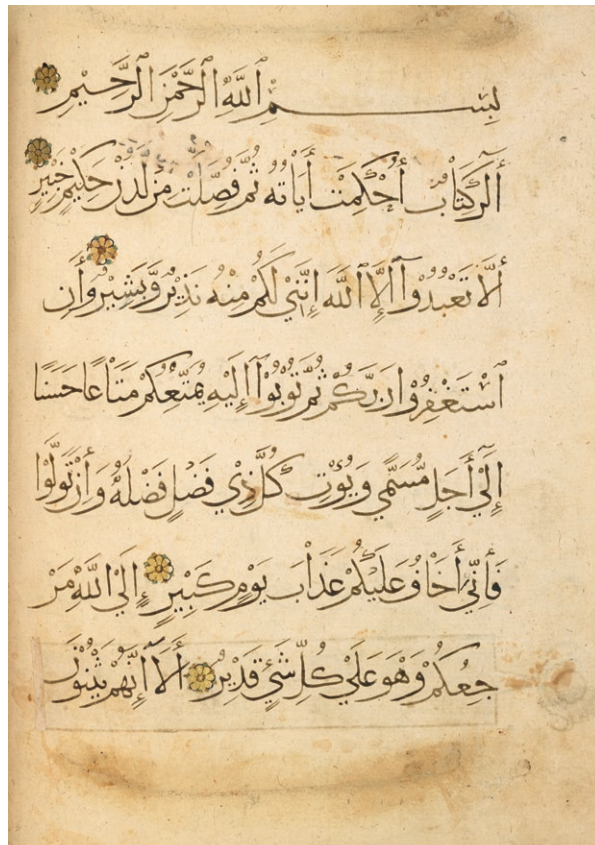 بِسْمِ ٱللَّهِ ٱلرَّحْمٰنِ ٱلرَّحِيْمِ
الٓرٰ كِتَابٌ أُحْكِمَتْ أٰيَاتُهُ ثُمَّ فُصِّلَتْ مِنْ لَدُنْ حَكِيْمٍ خَبِيْرٍ
أَلَّا تَعْبُدُوْآ إِلَّا ٱللَّهَ إِنَّنِيْ لَكُمْ مِنْهُ نَذِيْرٌ وَّبَشِيْرٌ وَأَنِ
ٱسْتَغْفِرُوْا رَبَّكُمْ ثُمَّ تُوْبُوْآ إِلَيْهِ يُمَتِّعْكُمْ مَتَاعًا حَسَنًا
إِلٰيٓ أَجَلٍ مُّسَمًّي وَيُؤْتِ كُلَّ ذِيْ فَضْلٍ فَضْلَهُ وَأِنْ تَوَلَّوْا
فَأِنِّيٓ أَخَافُ عَلَيْكُمْ عَذَابَ يَوْمٍ كَبِيْرٍ إِلَي اللَّهِ مَرْ
جِعُكُمْ وَهْوَ عَلٰي كُلِّ شَيْئٍ قَدِيْرٌ أَلَآ إِنَّهُمْ يَثْنُوْنَ